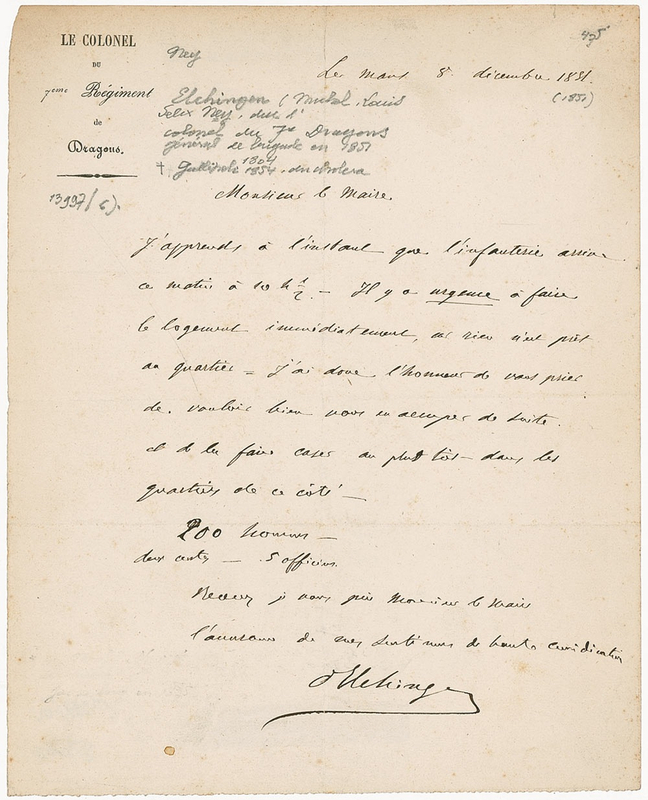 LE COLONEL
DU
7eme Régiment
de
Dragons.
Ney
435
Le Mans 8 décembre 1851.
(1851)
Elchingen (Michel, Louis
Felix Ney, duc d'
colonel du 7e Dragons
général de brigade en 1851
1804
† Gallipoli 1854. du choléra
13997/6).
Monsieur le Maire.
J'apprends à l'instant que l'infanterie arrive
ce matin à 10 h ½. — Il y a urgence à faire
le logement immédiatement, car rien n'est prêt
au quartier = J'ai donc l'honneur de vous prier
de vouloir bien vous en occuper de suite.
et de les faire caser au plus tôt — dans les
quartiers de ce côté —
200 hommes —
deux cents — 5 officiers.
Recevez je vous prie Monsieur le Maire
l'assurance de mes sentimens de haute considération
d'Elchingen